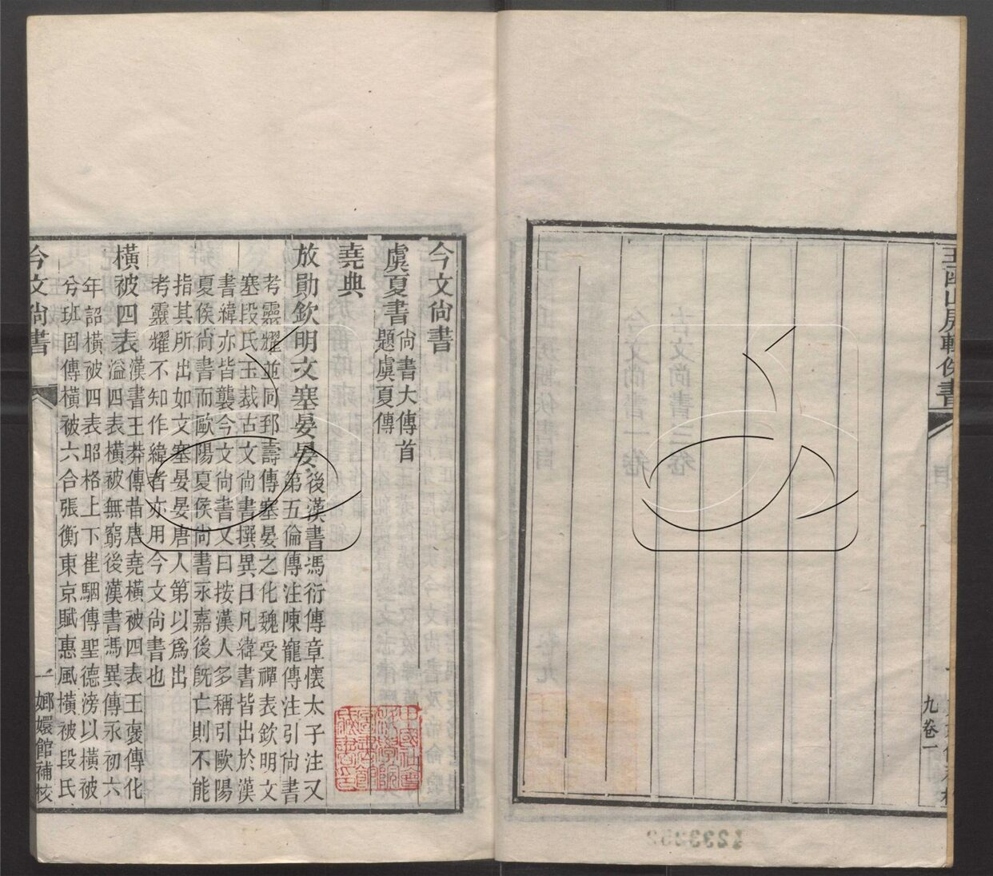 今文尚書
虞夏書尚書大傳首
題虞夏傳
堯典
放勛欽明文塞晏晏後漢書馮衍傳章懷太子注又
第五倫傳注陳寵傳注引尚書
考靈耀並同郅壽傳塞晏之化魏受禪表欽明文
塞段氏玉裁古文尚書撰異曰凡緯書皆出於漢
書緯亦皆襲今文尚書又曰按漢人多稱引歐陽
夏侯尚書而歐陽夏侯尚書永嘉後旣亡則不能
指其所出如文塞晏晏唐人第以爲出
考靈耀不知作緯者亦用今文尚書也
橫被四表漢書王莽傳昔唐堯橫被四表王褒傳化
溢四表橫被無窮後漢書馮異傳永初六
年詔橫被四表昭格上下崔駰傳聖德滂以橫被
兮班固傳橫被六合張衡東京賦惠風橫被段氏
今文尚書
一
嫏嬛館補校
玉函山房輯佚書
九卷一